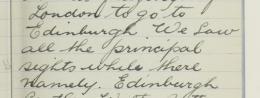 London to go to
Edinburgh. We saw
all the principal
sights while there
namely. Edinburgh